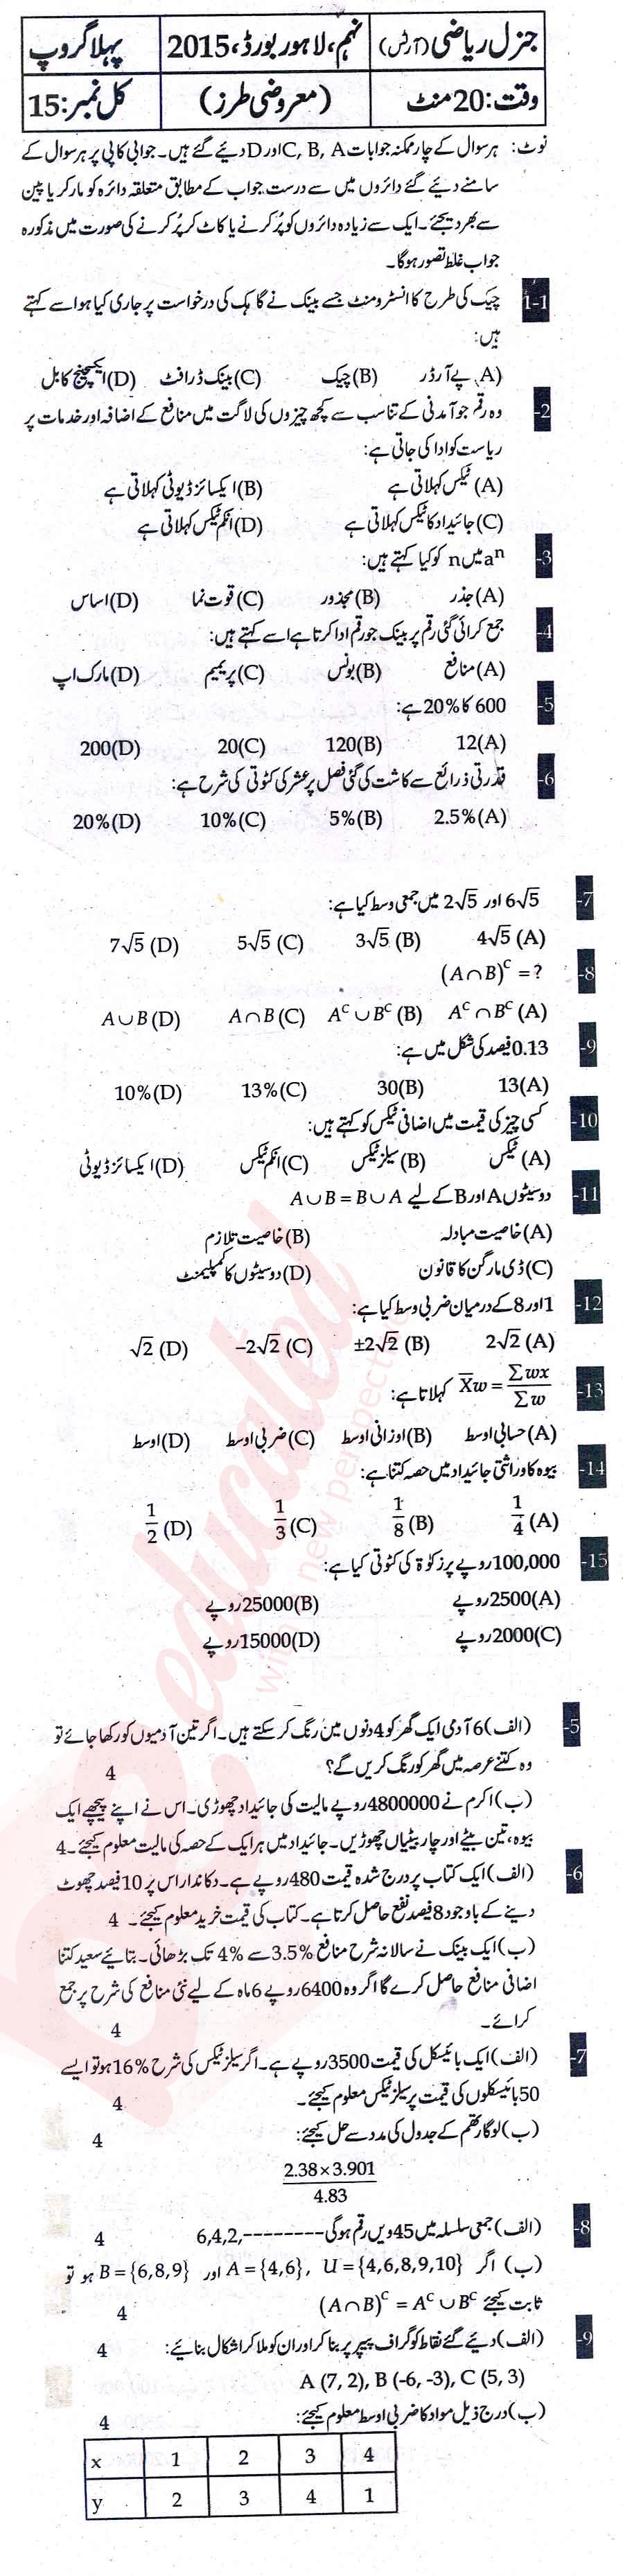 جنرل ریاضی (آرٹس) نہم، لاہور بورڈ، 2015 پہلا گروپ
وقت: 20 منٹ (معروضی طرز) کل نمبر: 15
نوٹ: ہر سوال کے چار ممکنہ جوابات C, B, A اور D دیئے گئے ہیں۔ جوابی کاپی پر ہر سوال کے
سامنے دیئے گئے دائروں میں سے درست جواب کے مطابق متعلقہ دائرہ کو مارکر یا پین
سے بھر دیجئے۔ ایک سے زیادہ دائروں کو پُر کرنے یا کاٹ کر پُر کرنے کی صورت میں مذکورہ
جواب غلط تصور ہوگا۔
1-1 چیک کی طرح کا انسٹرومنٹ جسے بینک نے گاہک کی درخواست پر جاری کیا ہوا سے کہتے
ہیں:
(A) پے آرڈر (B) چیک (C) بینک ڈرافٹ (D) ایکسچینج کا بل
-2 وہ رقم جو آمدنی کے تناسب سے کچھ چیزوں کی لاگت میں منافع کے اضافہ اور خدمات پر
ریاست کو ادا کی جاتی ہے:
(A) ٹیکس کہلاتی ہے (B) ایکسائز ڈیوٹی کہلاتی ہے
(C) جائیداد کا ٹیکس کہلاتی ہے (D) انکم ٹیکس کہلاتی ہے
-3 aⁿ میں n کو کیا کہتے ہیں:
(A) جذر (B) مجذور (C) قوت نما (D) اساس
-4 جمع کرائی گئی رقم پر بینک جو رقم ادا کرتا ہے اسے کہتے ہیں:
(A) منافع (B) بونس (C) پریمیم (D) مارک اپ
-5 600 کا 20% ہے:
12(A) 120(B) 20(C) 200(D)
-6 قدرتی ذرائع سے کاشت کی گئی فصل پر عشر کی کٹوتی کی شرح ہے:
2.5%(A) 5%(B) 10%(C) 20%(D)
-7 6√5 اور 2√5 میں جمعی وسط کیا ہے:
4√5 (A) 3√5 (B) 5√5 (C) 7√5 (D)
-8 (A∩B)ᶜ = ?
Aᶜ∩Bᶜ (A) Aᶜ∪Bᶜ (B) A∩B (C) A∪B (D)
-9 0.13 فیصد کی شکل میں ہے:
13(A) 30(B) 13%(C) 10%(D)
-10 کسی چیز کی قیمت میں اضافی ٹیکس کو کہتے ہیں:
(A) ٹیکس (B) سیلز ٹیکس (C) انکم ٹیکس (D) ایکسائز ڈیوٹی
-11 دو سیٹوں A اور B کے لیے A∪B = B∪A
(A) خاصیت مبادلہ (B) خاصیت تلازم
(C) ڈی مارگن کا قانون (D) دو سیٹوں کا کمپلیمنٹ
-12 1 اور 8 کے درمیان ضربی وسط کیا ہے:
2√2 (A) ±2√2 (B) −2√2 (C) √2 (D)
-13 X̄w = Σwx / Σw کہلاتا ہے:
(A) حسابی اوسط (B) اوزانی اوسط (C) ضربی اوسط (D) اوسط
-14 بیوہ کا وراثتی جائیداد میں حصہ کتنا ہے:
1/4 (A) 1/8 (B) 1/3 (C) 1/2 (D)
-15 100,000 روپے پر زکوٰۃ کی کٹوتی کیا ہے:
(A) 2500 روپے (B) 25000 روپے
(C) 2000 روپے (D) 15000 روپے
-5 (الف) 6 آدمی ایک گھر کو 4 دنوں میں رنگ کر سکتے ہیں۔ اگر تین آدمیوں کو رکھا جائے تو
وہ کتنے عرصہ میں گھر کو رنگ کریں گے؟ 4
(ب) اکرم نے 4800000 روپے مالیت کی جائیداد چھوڑی۔ اس نے اپنے پیچھے ایک
بیوہ، تین بیٹے اور چار بیٹیاں چھوڑیں۔ جائیداد میں ہر ایک کے حصہ کی مالیت معلوم کیجئے۔ 4
-6 (الف) ایک کتاب پر درج شدہ قیمت 480 روپے ہے۔ دکاندار اس پر 10 فیصد چھوٹ
دینے کے باوجود 8 فیصد نفع حاصل کرتا ہے۔ کتاب کی قیمت خرید معلوم کیجئے۔ 4
(ب) ایک بینک نے سالانہ شرح منافع 3.5% سے 4% تک بڑھائی۔ بتائیے سعید کتنا
اضافی منافع حاصل کرے گا اگر وہ 6400 روپے 6 ماہ کے لیے نئی منافع کی شرح پر جمع
کرائے۔ 4
-7 (الف) ایک بائیسکل کی قیمت 3500 روپے ہے۔ اگر سیلز ٹیکس کی شرح 16% ہو تو ایسے
50 بائیسکلوں کی قیمت پر سیلز ٹیکس معلوم کیجئے۔ 4
(ب) لوگارتھم کے جدول کی مدد سے حل کیجئے: 4
2.38×3.901
4.83
-8 (الف) جمعی سلسلہ میں 45 ویں رقم ہوگی 6,4,2,-------- 4
(ب) اگر U = {4,6,8,9,10} , A = {4,6} اور B = {6,8,9} ہو تو
ثابت کیجئے (A∩B)ᶜ = Aᶜ∪Bᶜ 4
-9 (الف) دیئے گئے نقاط کو گراف پیپر پر بنا کر اور ان کو ملا کر اشکال بنائیے: 4
A (7, 2), B (-6, -3), C (5, 3)
(ب) درج ذیل مواد کا ضربی اوسط معلوم کیجئے: 4
x 1 2 3 4
y 2 3 4 1
educated
with new perspective